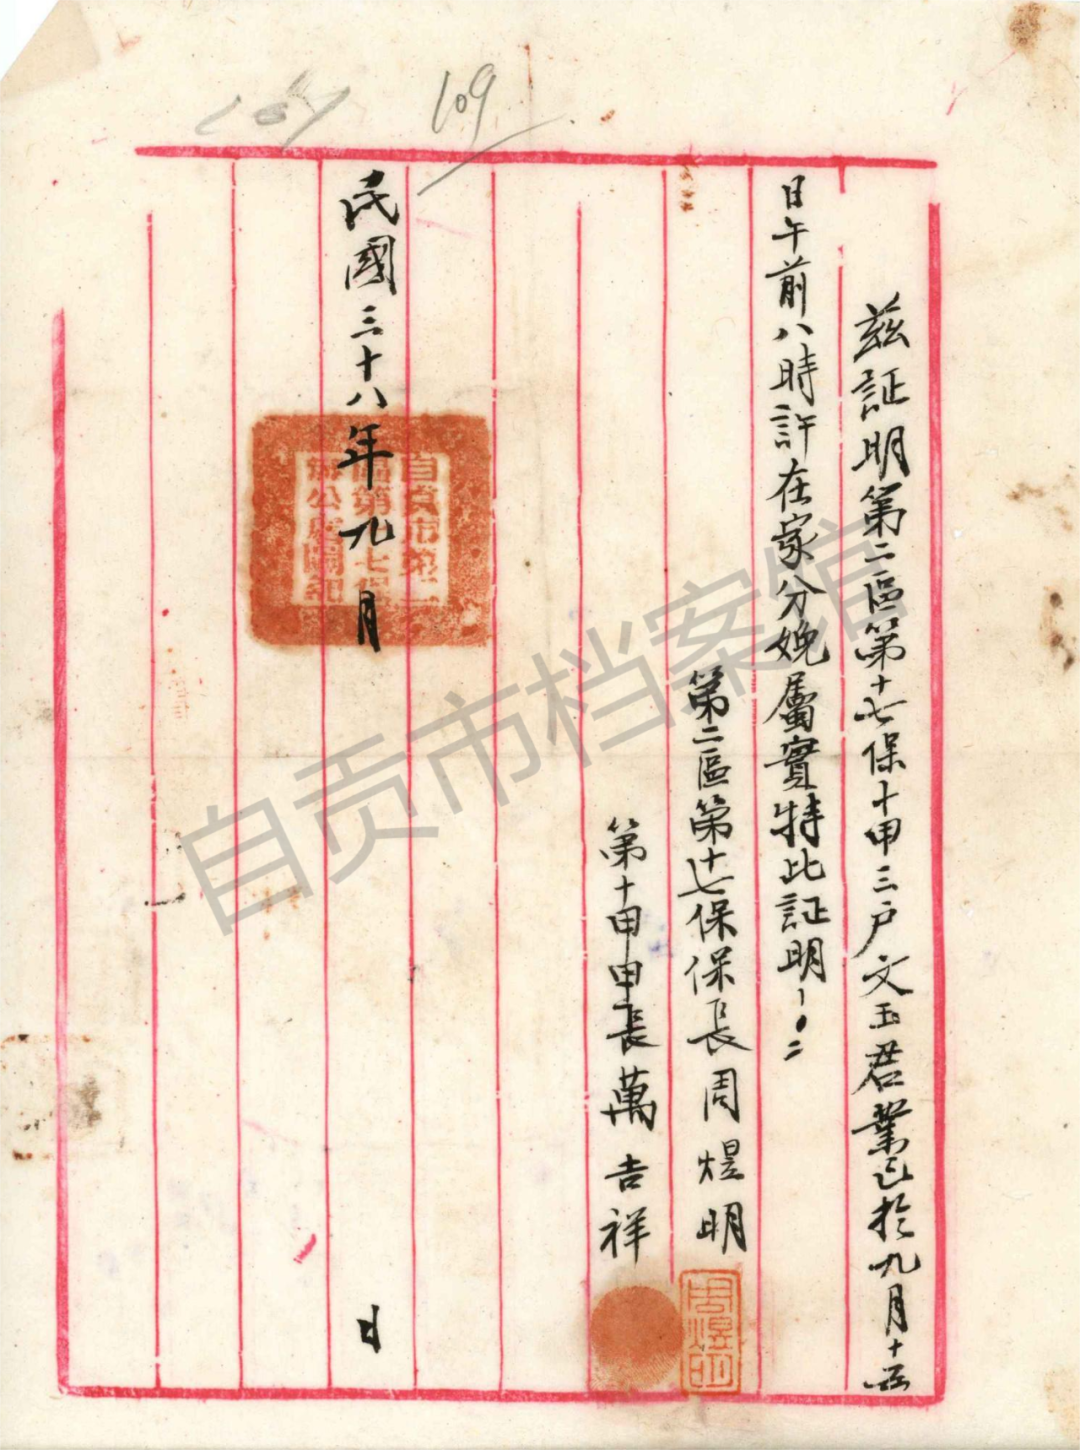 109
兹証明第二區第十七保十甲三户文玉君業已於九月十五
日午前八時許在家分娩屬實特此証明
第二區第十七保保長周煜明
第十甲甲長萬吉祥
民國三十八年九月 日
自貢市第二
區第十七保
辦公處圖記
周煜明
自贡市档案馆